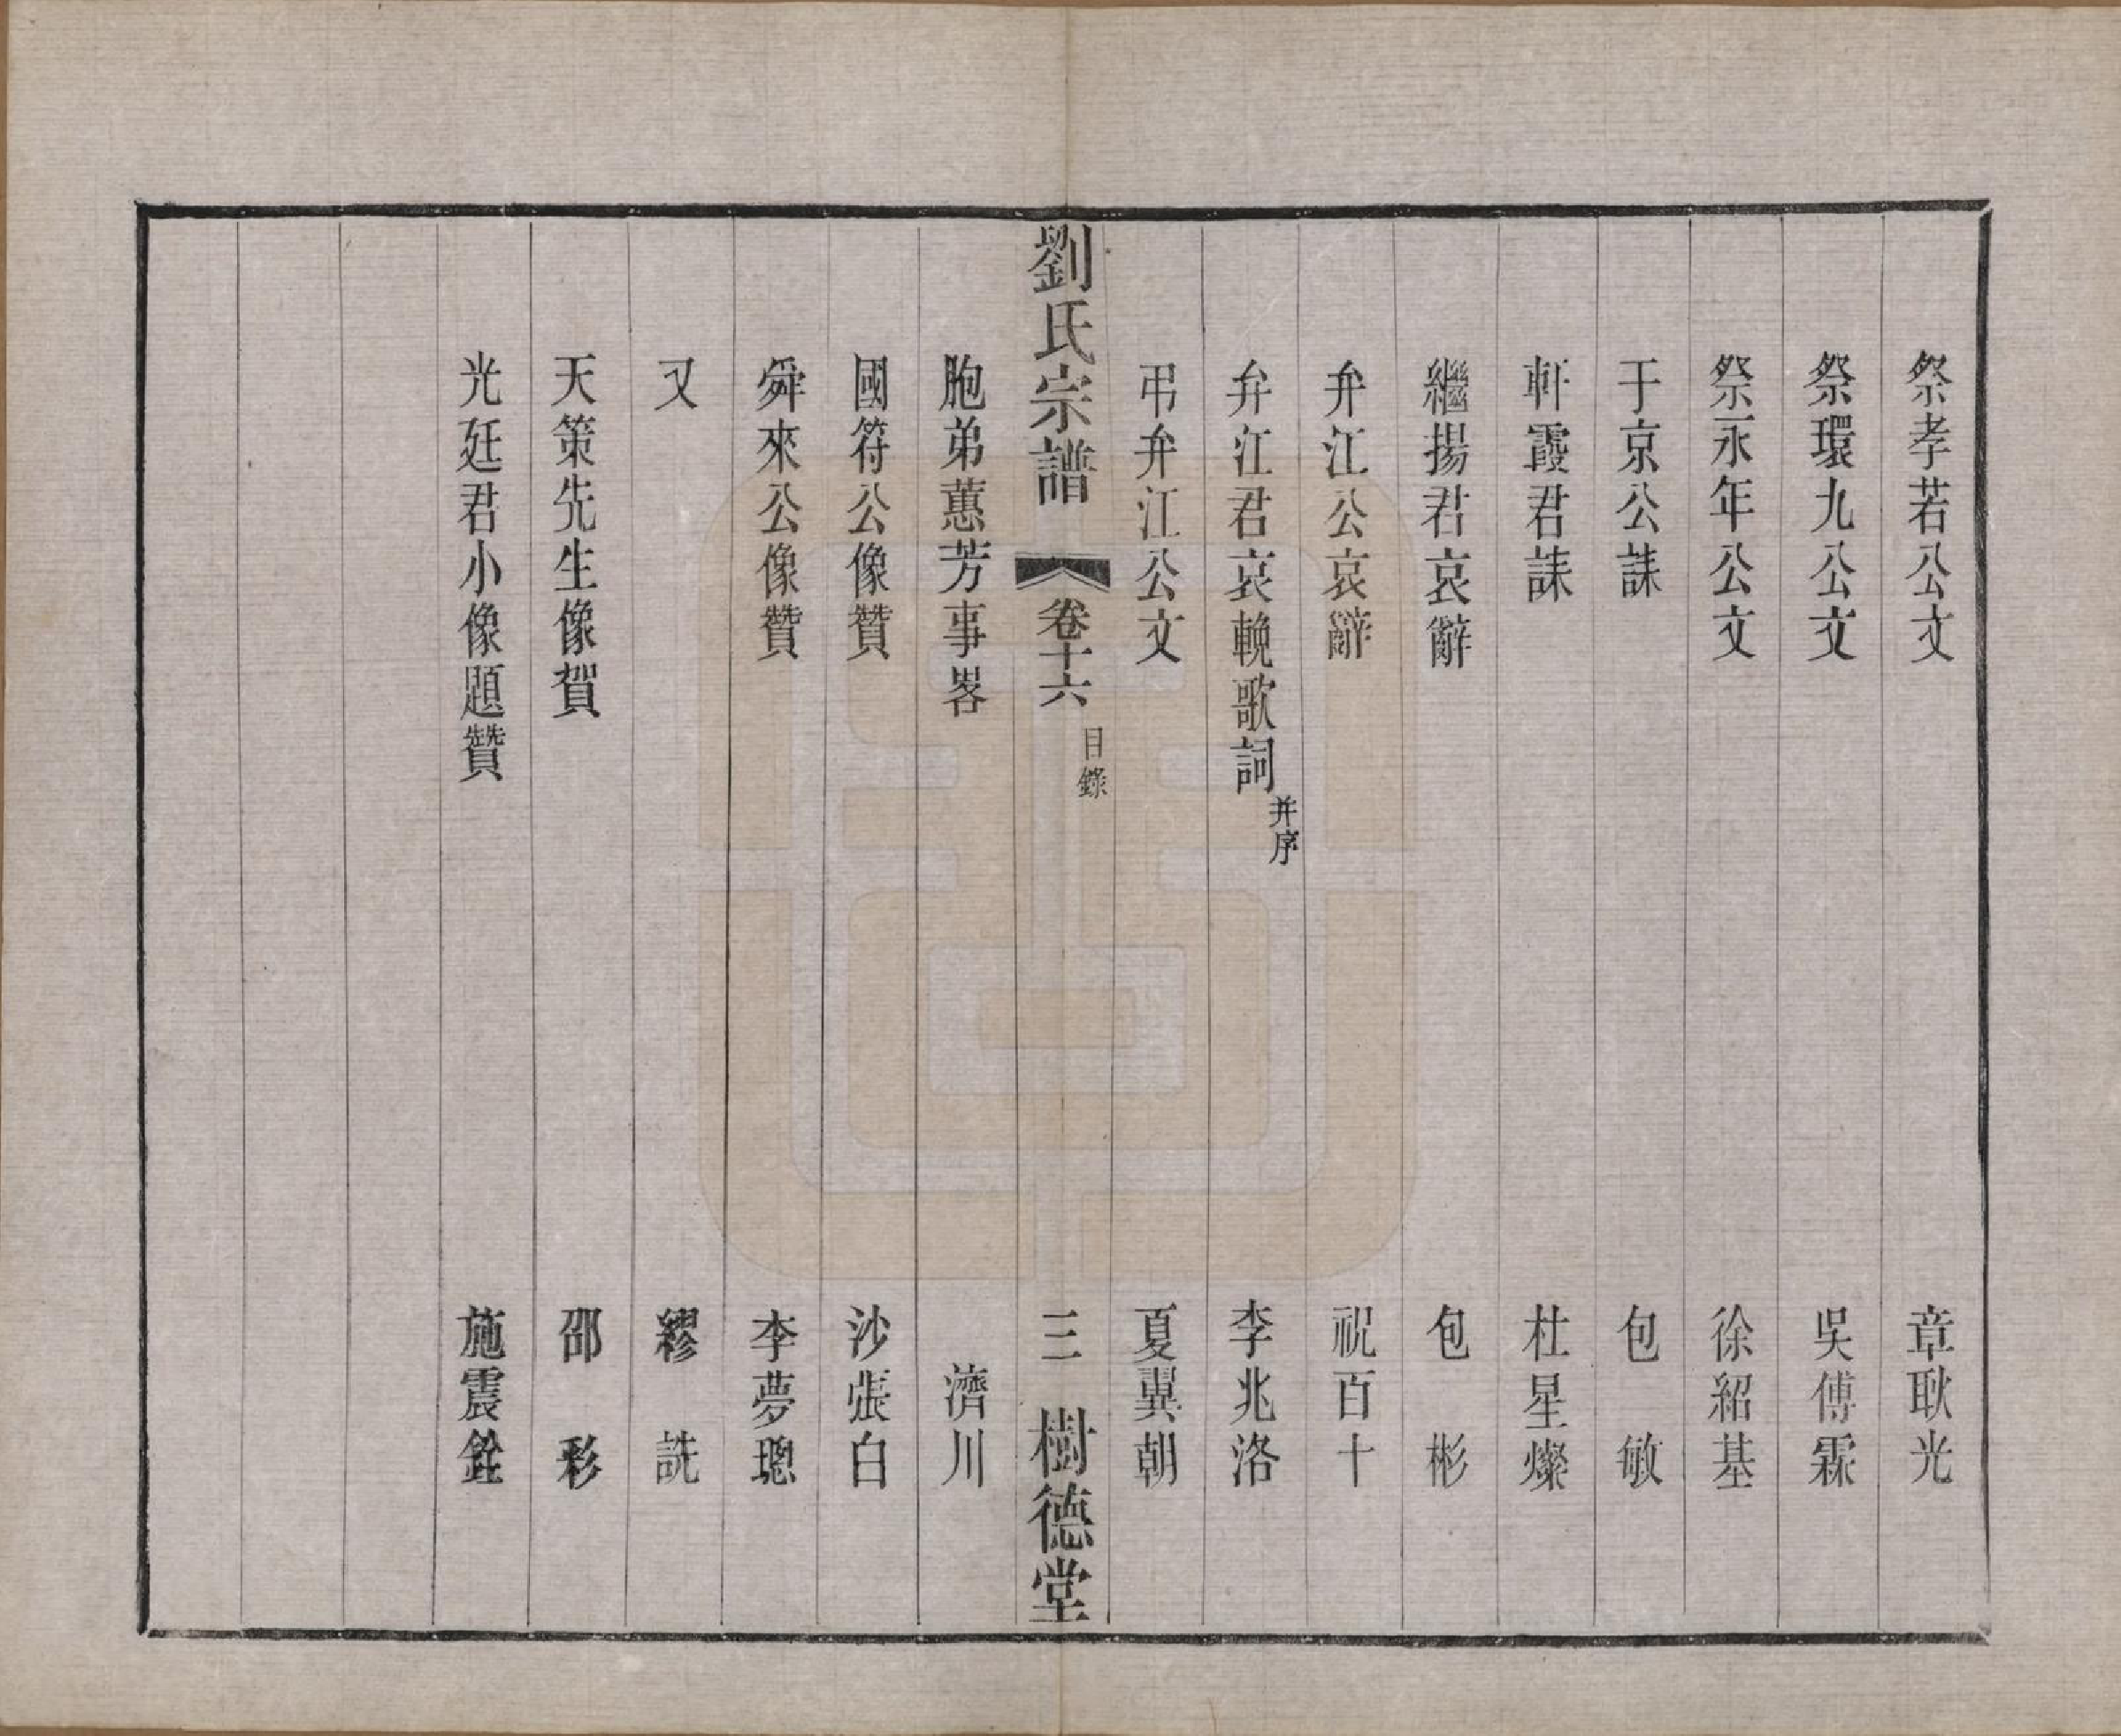 祭孝若公文 章耿光
祭環九公文 吳傅霖
祭永年公文 徐紹基
于京公誄 包敏
軒霞君誄 杜星燦
繼揚君哀辭 包彬
弁江公哀辭 祝百十
弁江君哀輓歌詞并序 李兆洛
弔弁江公文 夏翼朝
劉氏宗譜 卷十六 目錄 三 樹德堂
胞弟蕙芳事畧 濟川
國符公像贊 沙張白
舜來公像贊 李夢聰
又 繆詵
天策先生像賀 邵彩
光廷君小像題贊 施震銓